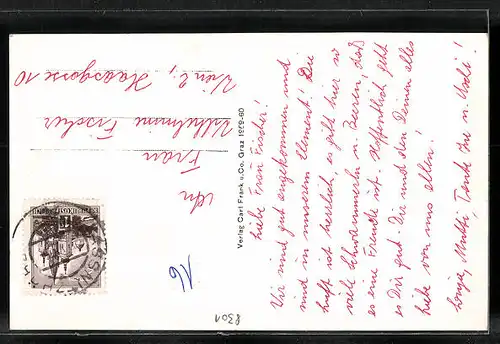 Liebe Frau Fischer!
Wir sind gut angekommen und
sind in unserem Element! Die
Luft ist herrlich, es gibt hier so
viel Schwammerln u. Beeren, daß
es eine Freude ist. Hoffentlich geht
es Dir gut. Dir und den Deinen alles
Liebe von uns allen!
Mutti Tante u.
An
Frau
Wilhelmine Fischer
Wien 2, Haasgasse 10
Verlag Carl Frank u. Co. Graz 1959-60
16
8301